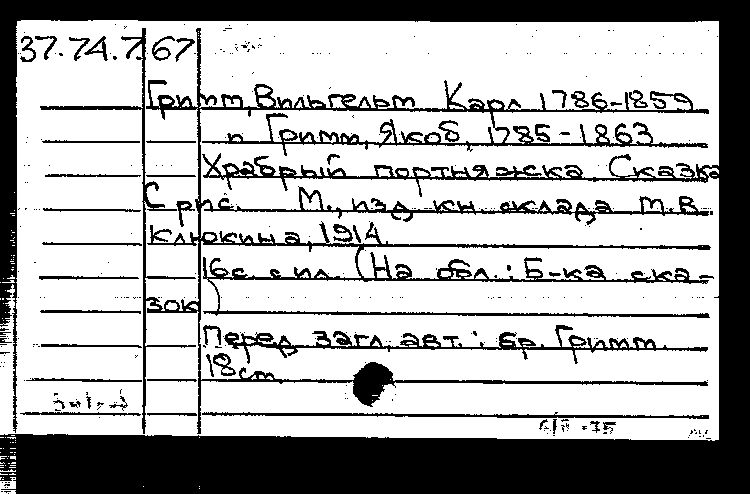 37.74.7.67
Гримм, Вильгельм Карл 1786-1859
и Гримм, Якоб, 1785-1863
Храбрый портняжка. Сказка
С рис. М., изд. кн. склада М.В.
Клюкина, 1914.
16с. с ил. (На обл.: Б-ка ска-
зок)
Перед загл. авт.: бр. Гримм.
18см.
6/II-75